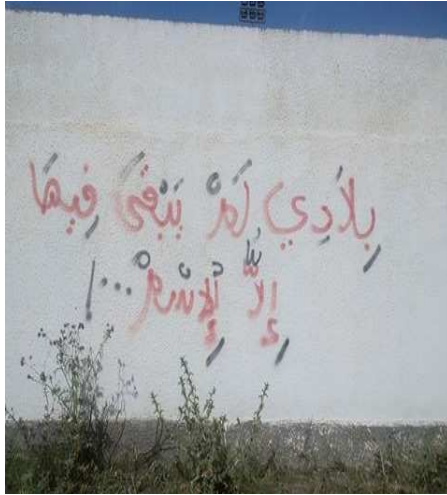 بِلاَدِي لَمْ يَبْقَى فِيهَا
إِلاَّ اُلْإِسْمْ...!